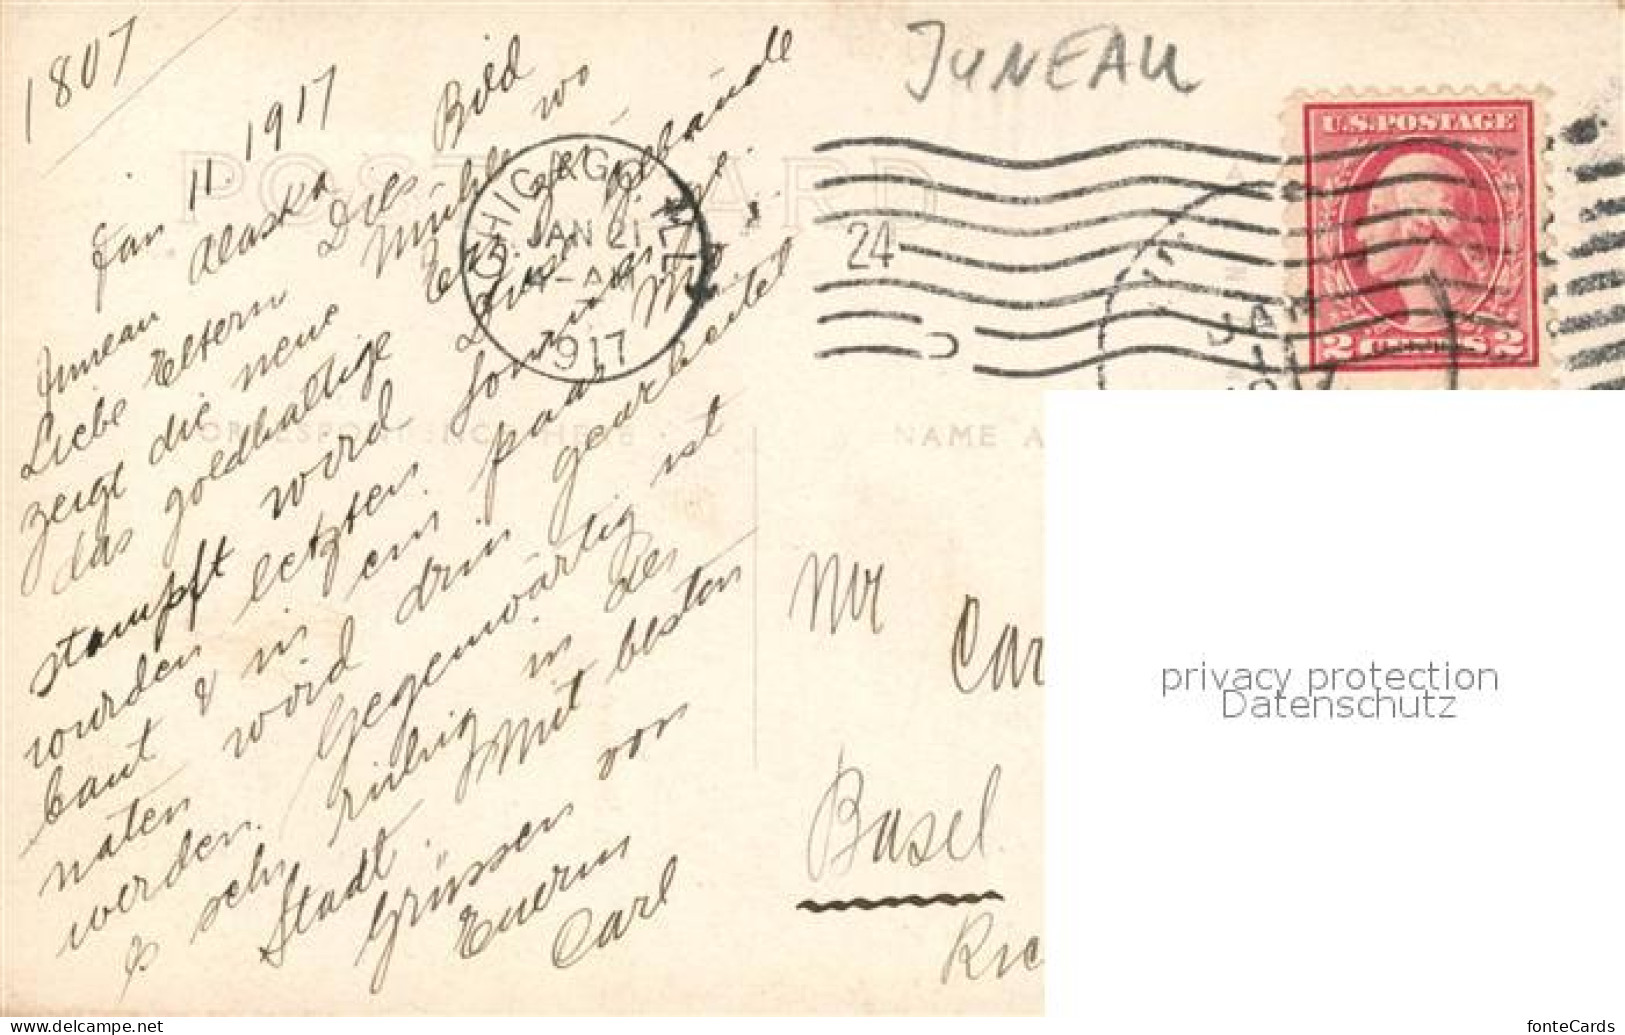 1807
Jan 11. 1917
Juneau Alaska
Liebe Eltern Dies Bild
zeigt die neue Mühle wo
das goldhaltige Erz ge-
stampft wird. Diese Gebäude
wurden letzten Sommer ge-
baut & in ein paar Mo-
naten wird drin gearbeitet
werden. Gegenwärtig ist
es sehr ruhig in der
Stadt. Mit besten
Grüssen von
Euerm
Carl
POST CARD
CORRESPONDENCE HERE
NAME A
CHICAGO, ILL.
JAN 21
-AM
1917
24
JUNEAU
U.S. POSTAGE
2 CENTS 2
JAN
Mr Car
Basel.
Ric
privacy protection
Datenschutz
www.delcampe.net
fonteCards